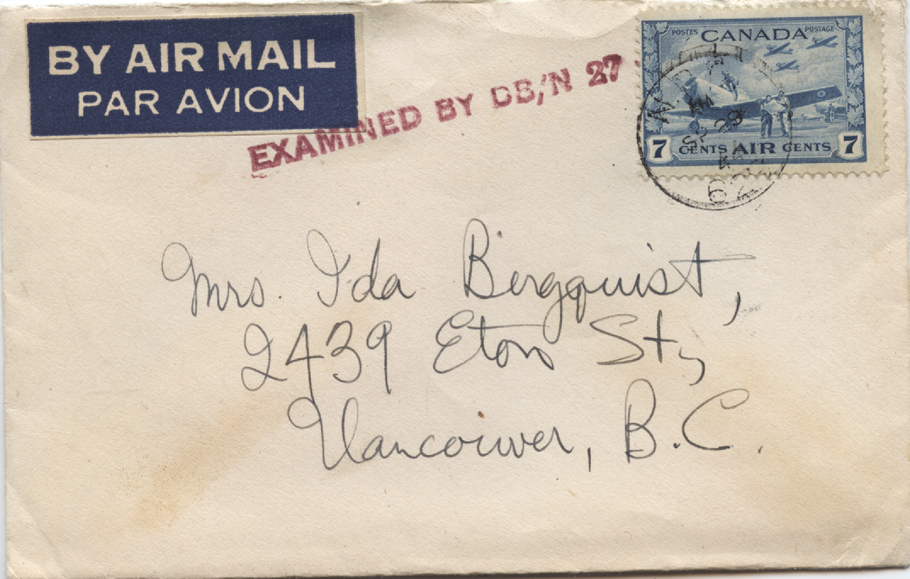 BY AIR MAIL
PAR AVION
EXAMINED BY DB/N 27
POSTES CANADA POSTAGE
7 CENTS AIR CENTS 7
Mrs. Ida Bergquist,
2439 Eton St,
Vancouver, B.C.